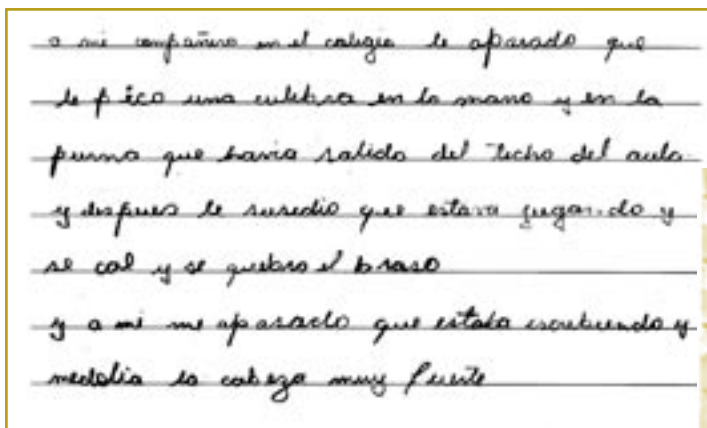 a mi compañero en el colegio le aparado que
le pico una culebra en la mano y en la
pierna que havia salido del techo del aula
y despues le susedio que estava gugando y
se cal y se quebro el braso
y a mi me aparado que estaba escribiendo y
medolia la cabeza muy fuerte